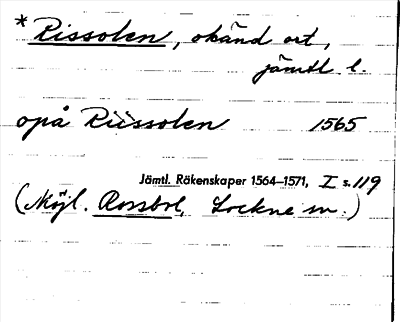 * Rissolen, okänd ort,
jämtl l.
opå Riissolen 1565
Jämtl. Räkenskaper 1564—1571, I s. 119
(Möjl. Rossbol, Lockne sn.)